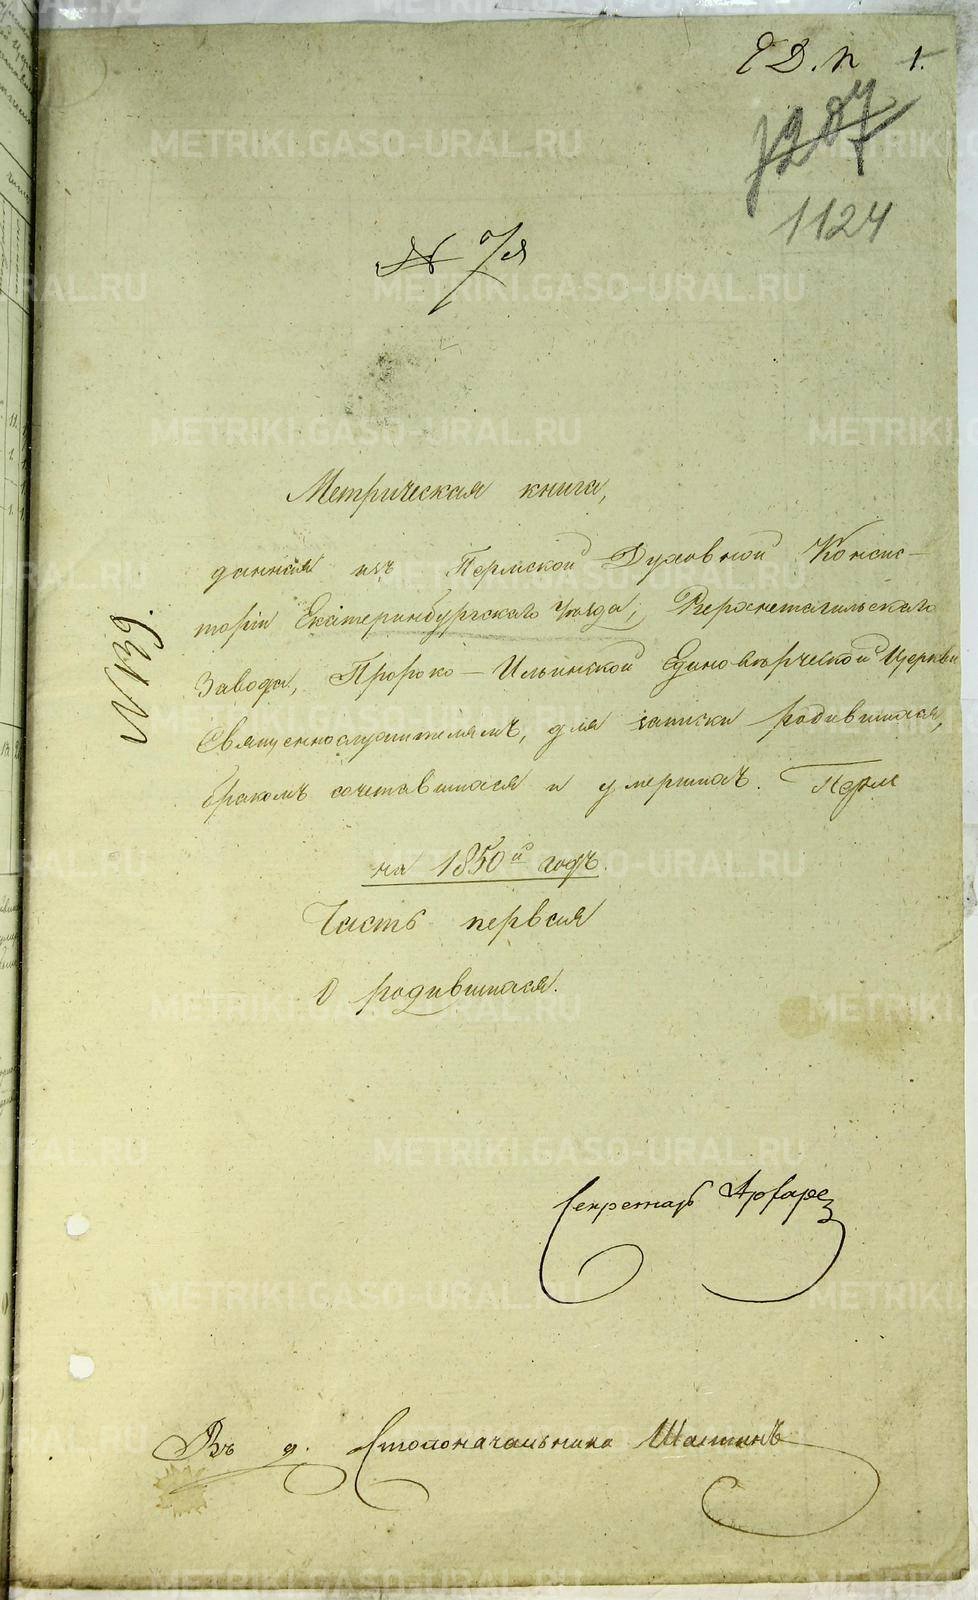 Е Д. П 1.
1287
1124
№ 7я
№ 139.
Метрическая книга,
данная изъ Пермской Духовной Консис-
торіи Екатеринбургскаго Уѣзда, Верхнетагильскаго
Завода, Пророко-Ильинской Единовѣрческой Церкви
Священнослужителямъ, для записки родившихся,
бракомъ сочетавшихся и умершихъ.
на 1850й годъ.
Часть первая
О родившихся.
Секретарь
Въ д. Столоначальника
METRIKI.GASO-URAL.RU